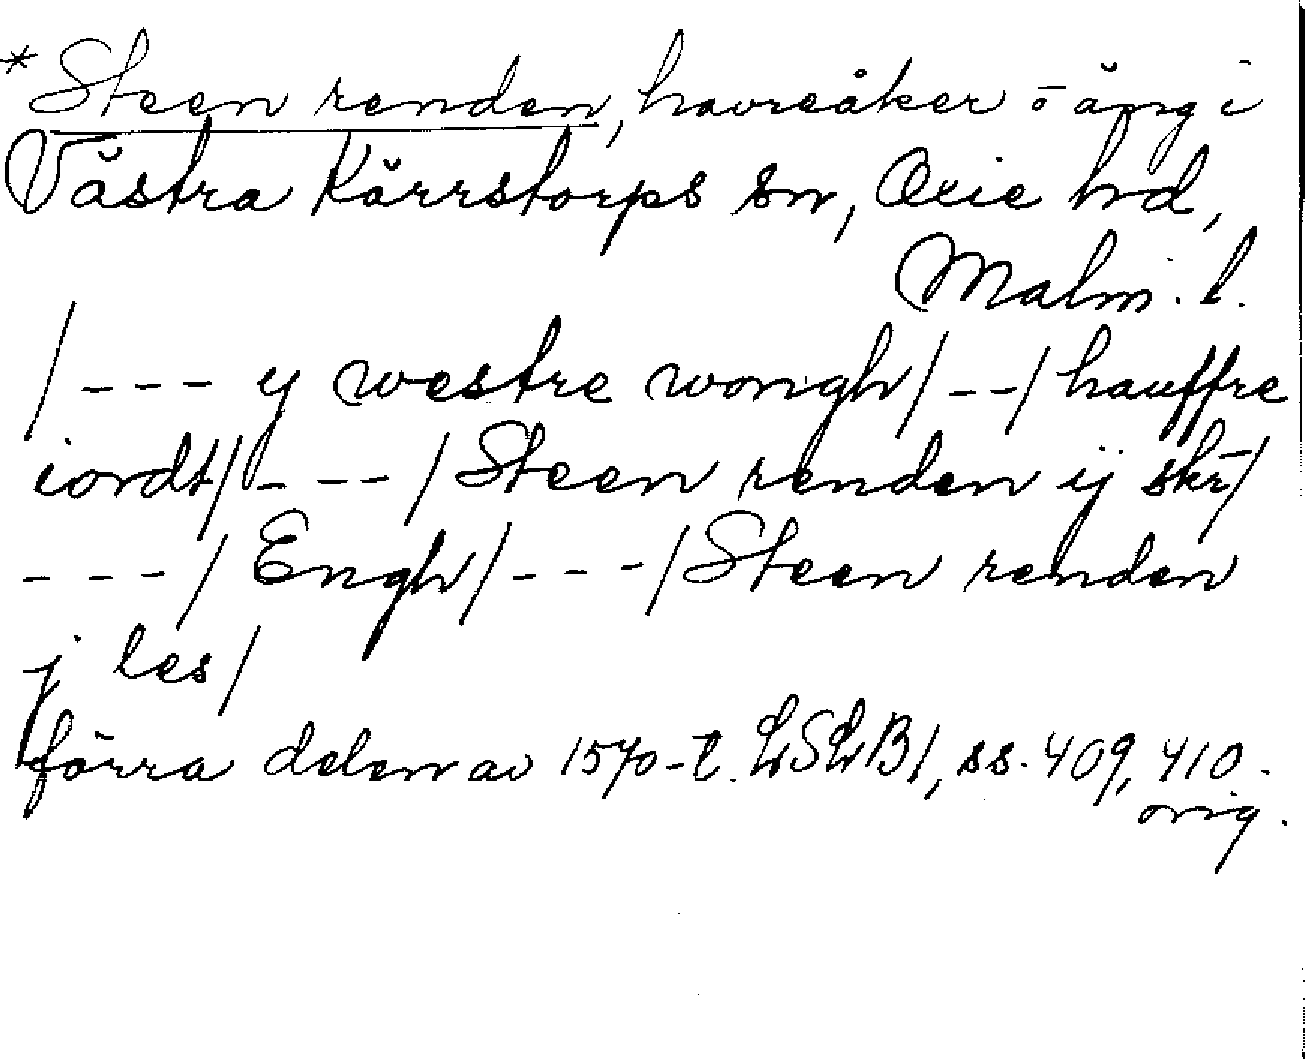 * Steen renden, havreåker o äng i
Västra Kärrstorps sn, Oxie hd,
Malm. l.
/--- y westre wongh/--/hauffre
iordt/---/Steen renden ij skr/
---/Engh/---/Steen renden
j les/
förra delen av 1570-t. LSLB1, ss. 409, 410.
orig.